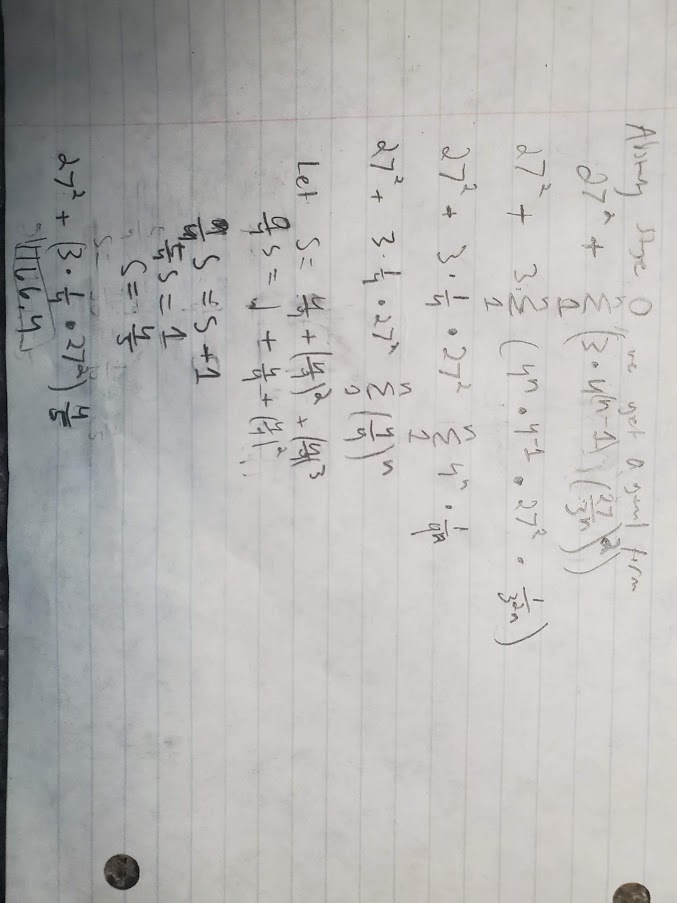 Above stage 0, we get a general form
27² + Σ 1 n (3 · 4(n-1) · (27/3ⁿ)²)
27² + 3 Σ 1 n (4ⁿ · 4⁻¹ · 27² · 1/3²ⁿ)
27² + 3 · 1/4 · 27² Σ 1 n 4ⁿ · 1/9ⁿ
27² + 3 · 1/4 · 27² Σ n (4/9)ⁿ
Let S = 4/9 + (4/9)² + (4/9)³
9/4 S = 1 + 4/9 + (4/9)² ...
9/4 S = S + 1
5/4 S = 1
S = 4/5
27² + (3 · 1/4 · 27²) 4/5
1166.4